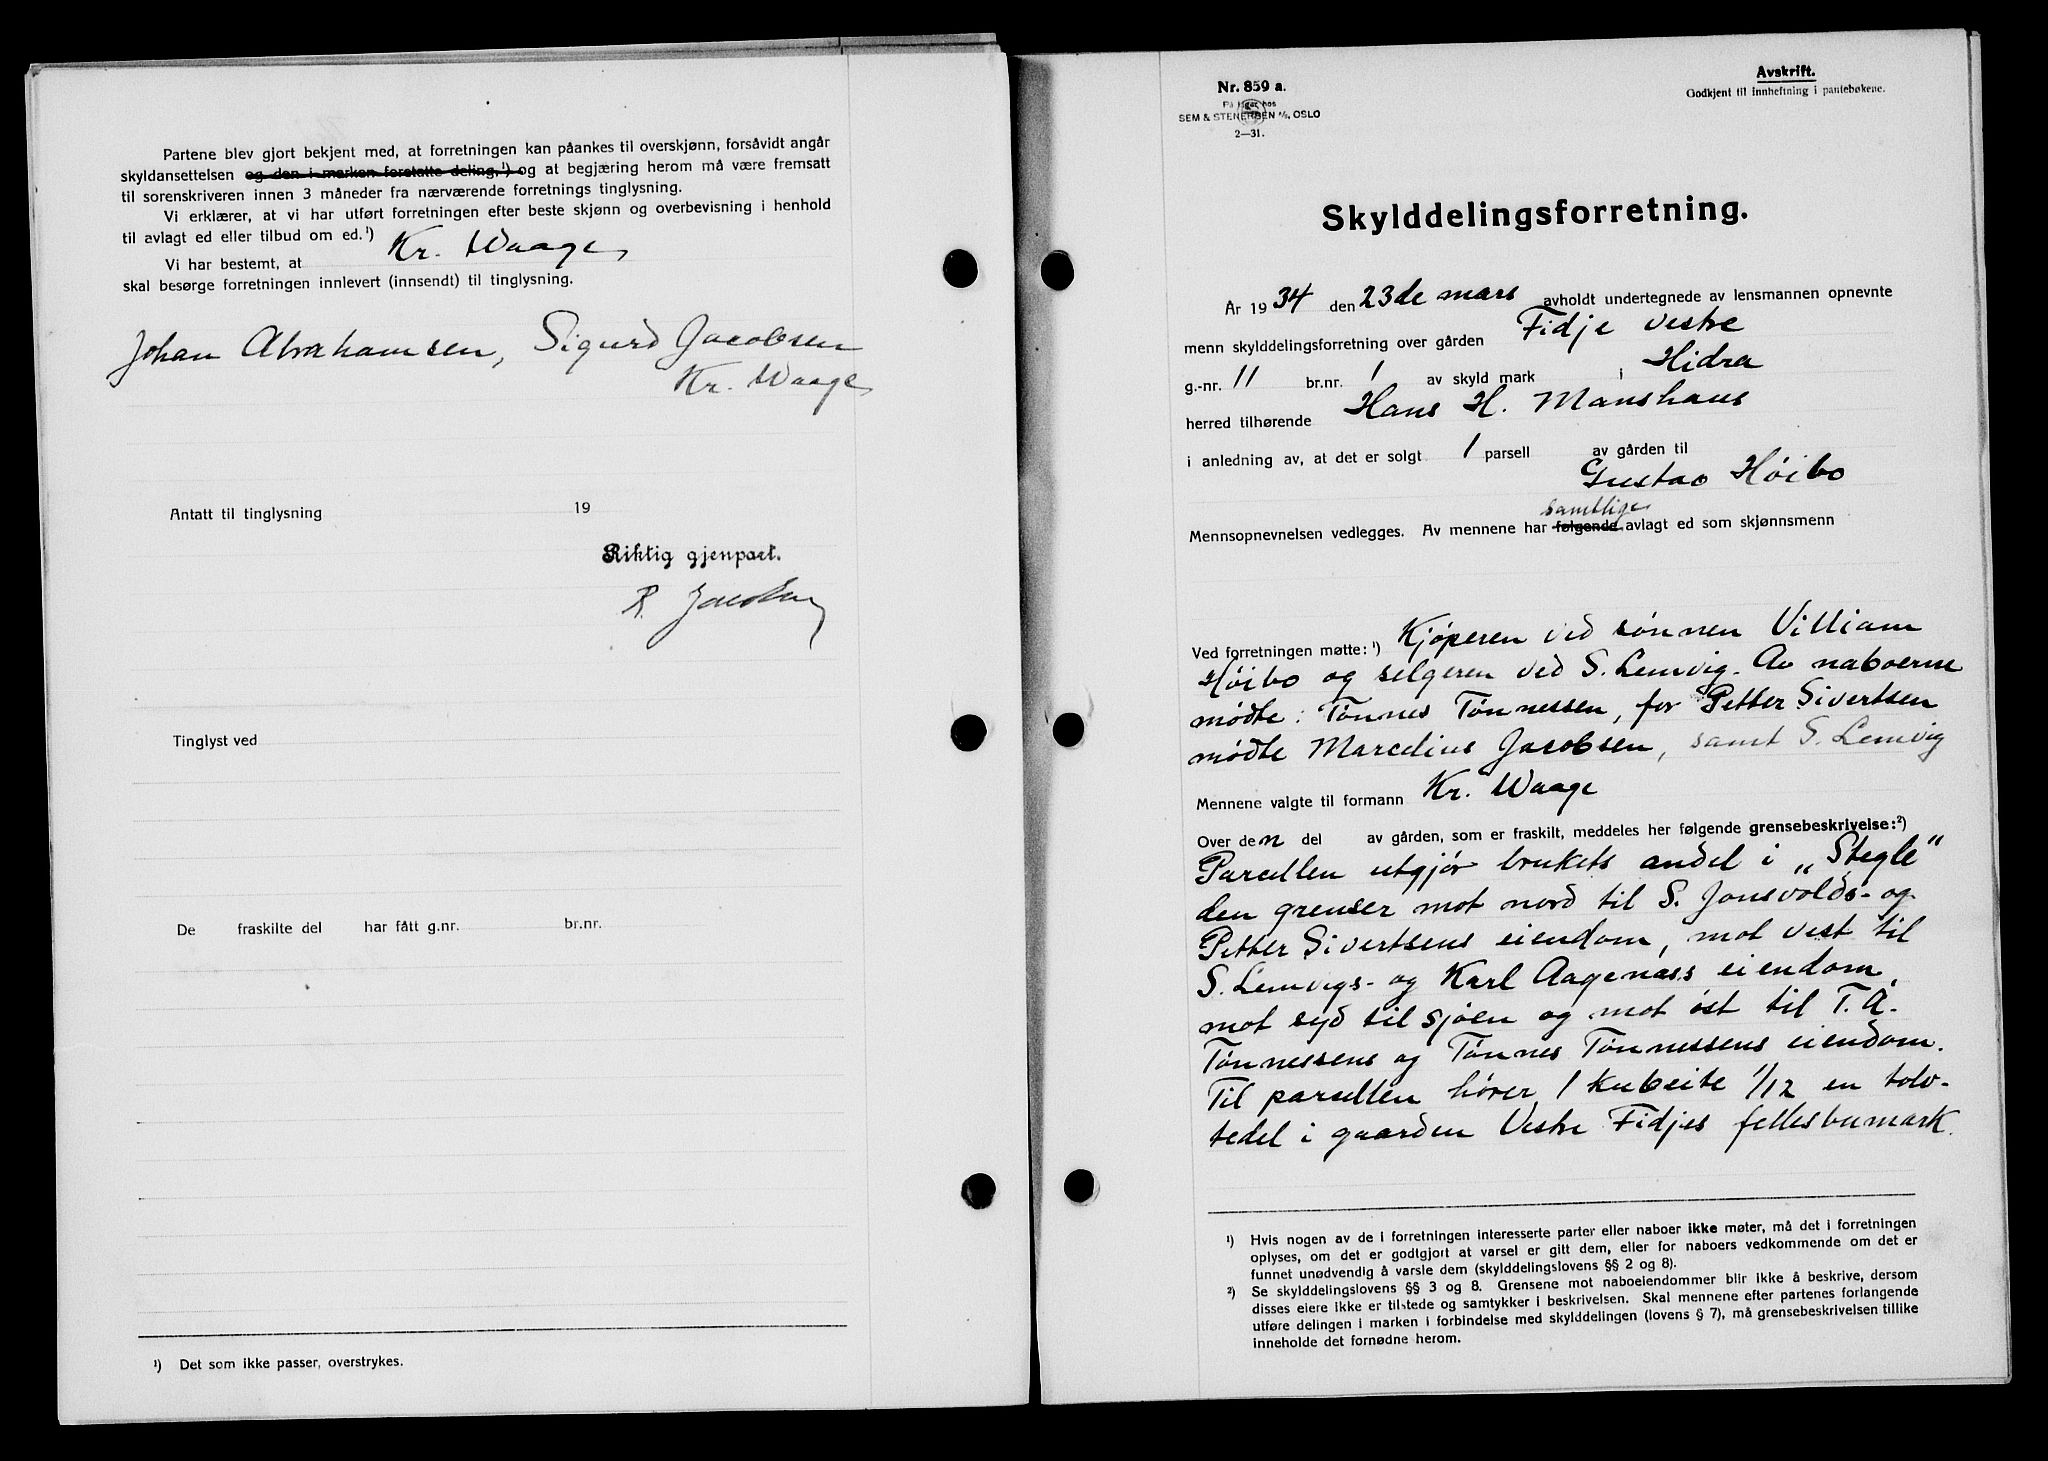 Partene blev gjort bekjent med, at forretningen kan påankes til overskjønn, forsåvidt angår
skyldansettelsen og den i marken foretatte deling,¹) og at begjæring herom må være fremsatt
til sorenskriveren innen 3 måneder fra nærværende forretnings tinglysning.
Vi erklærer, at vi har utført forretningen efter beste skjønn og overbevisning i henhold
til avlagt ed eller tilbud om ed.¹)
Vi har bestemt, at Kr. Waage
skal besørge forretningen innlevert (innsendt) til tinglysning.
Johan Abrahamsen, Sigurd Jacobsen
Kr. Waage
Antatt til tinglysning 19
Riktig gjenpart.
R. Jacobsen
Tinglyst ved
De fraskilte del har fått g.nr. br.nr.
¹) Det som ikke passer, overstrykes.
Nr. 859 a.
På lager hos
SEM & STENERSEN A/S, OSLO
2—31.
Avskrift.
Godkjent til innheftning i pantebøkene.
Skylddelingsforretning.
År 1934 den 23de mars avholdt undertegnede av lensmannen opnevnte
menn skylddelingsforretning over gården Fidje vestre
g.-nr. 11 br.nr. 1 av skyld mark i Hidra
herred tilhørende Hans H. Manshaus
i anledning av, at det er solgt 1 parsell av gården til
Gustav Høibo
samtlige
Mennsopnevnelsen vedlegges. Av mennene har følgende avlagt ed som skjønnsmenn
Ved forretningen møtte:¹) Kjøperen ved sønnen Villiam
Høibo og selgeren ved S. Lemvig. Av naboerne
mødte: Tønnes Tønnessen, for Petter Sivertsen
mødte Marcelius Jacobsen, samt S. Lemvig
Mennene valgte til formann Kr. Waage
Over den del av gården, som er fraskilt, meddeles her følgende grensebeskrivelse:²)
Parcellen utgjør brukets andel i „Stegle"
den grenser mot nord til S. Jonsvolds- og
Petter Sivertsens eiendom, mot vest til
S. Lemvigs- og Karl Aagenæs eiendom,
mot syd til sjøen og mot øst til T. A.
Tønnessens og Tønnes Tønnessens eiendom.
Til parcellen hører 1 kubeite 1/12 en tolv-
tedel i gaarden Vestre Fidjes fellesbumark.
¹) Hvis nogen av de i forretningen interesserte parter eller naboer ikke møter, må det i forretningen
oplyses, om det er godtgjort at varsel er gitt dem, eller for naboers vedkommende om det er
funnet unødvendig å varsle dem (skylddelingslovens §§ 2 og 8).
²) Se skylddelingslovens §§ 3 og 8. Grensene mot naboeiendommer blir ikke å beskrive, dersom
disses eiere ikke er tilstede og samtykker i beskrivelsen. Skal mennene efter partenes forlangende
utføre delingen i marken i forbindelse med skylddelingen (lovens § 7), må grensebeskrivelsen tillike
inneholde det fornødne herom.